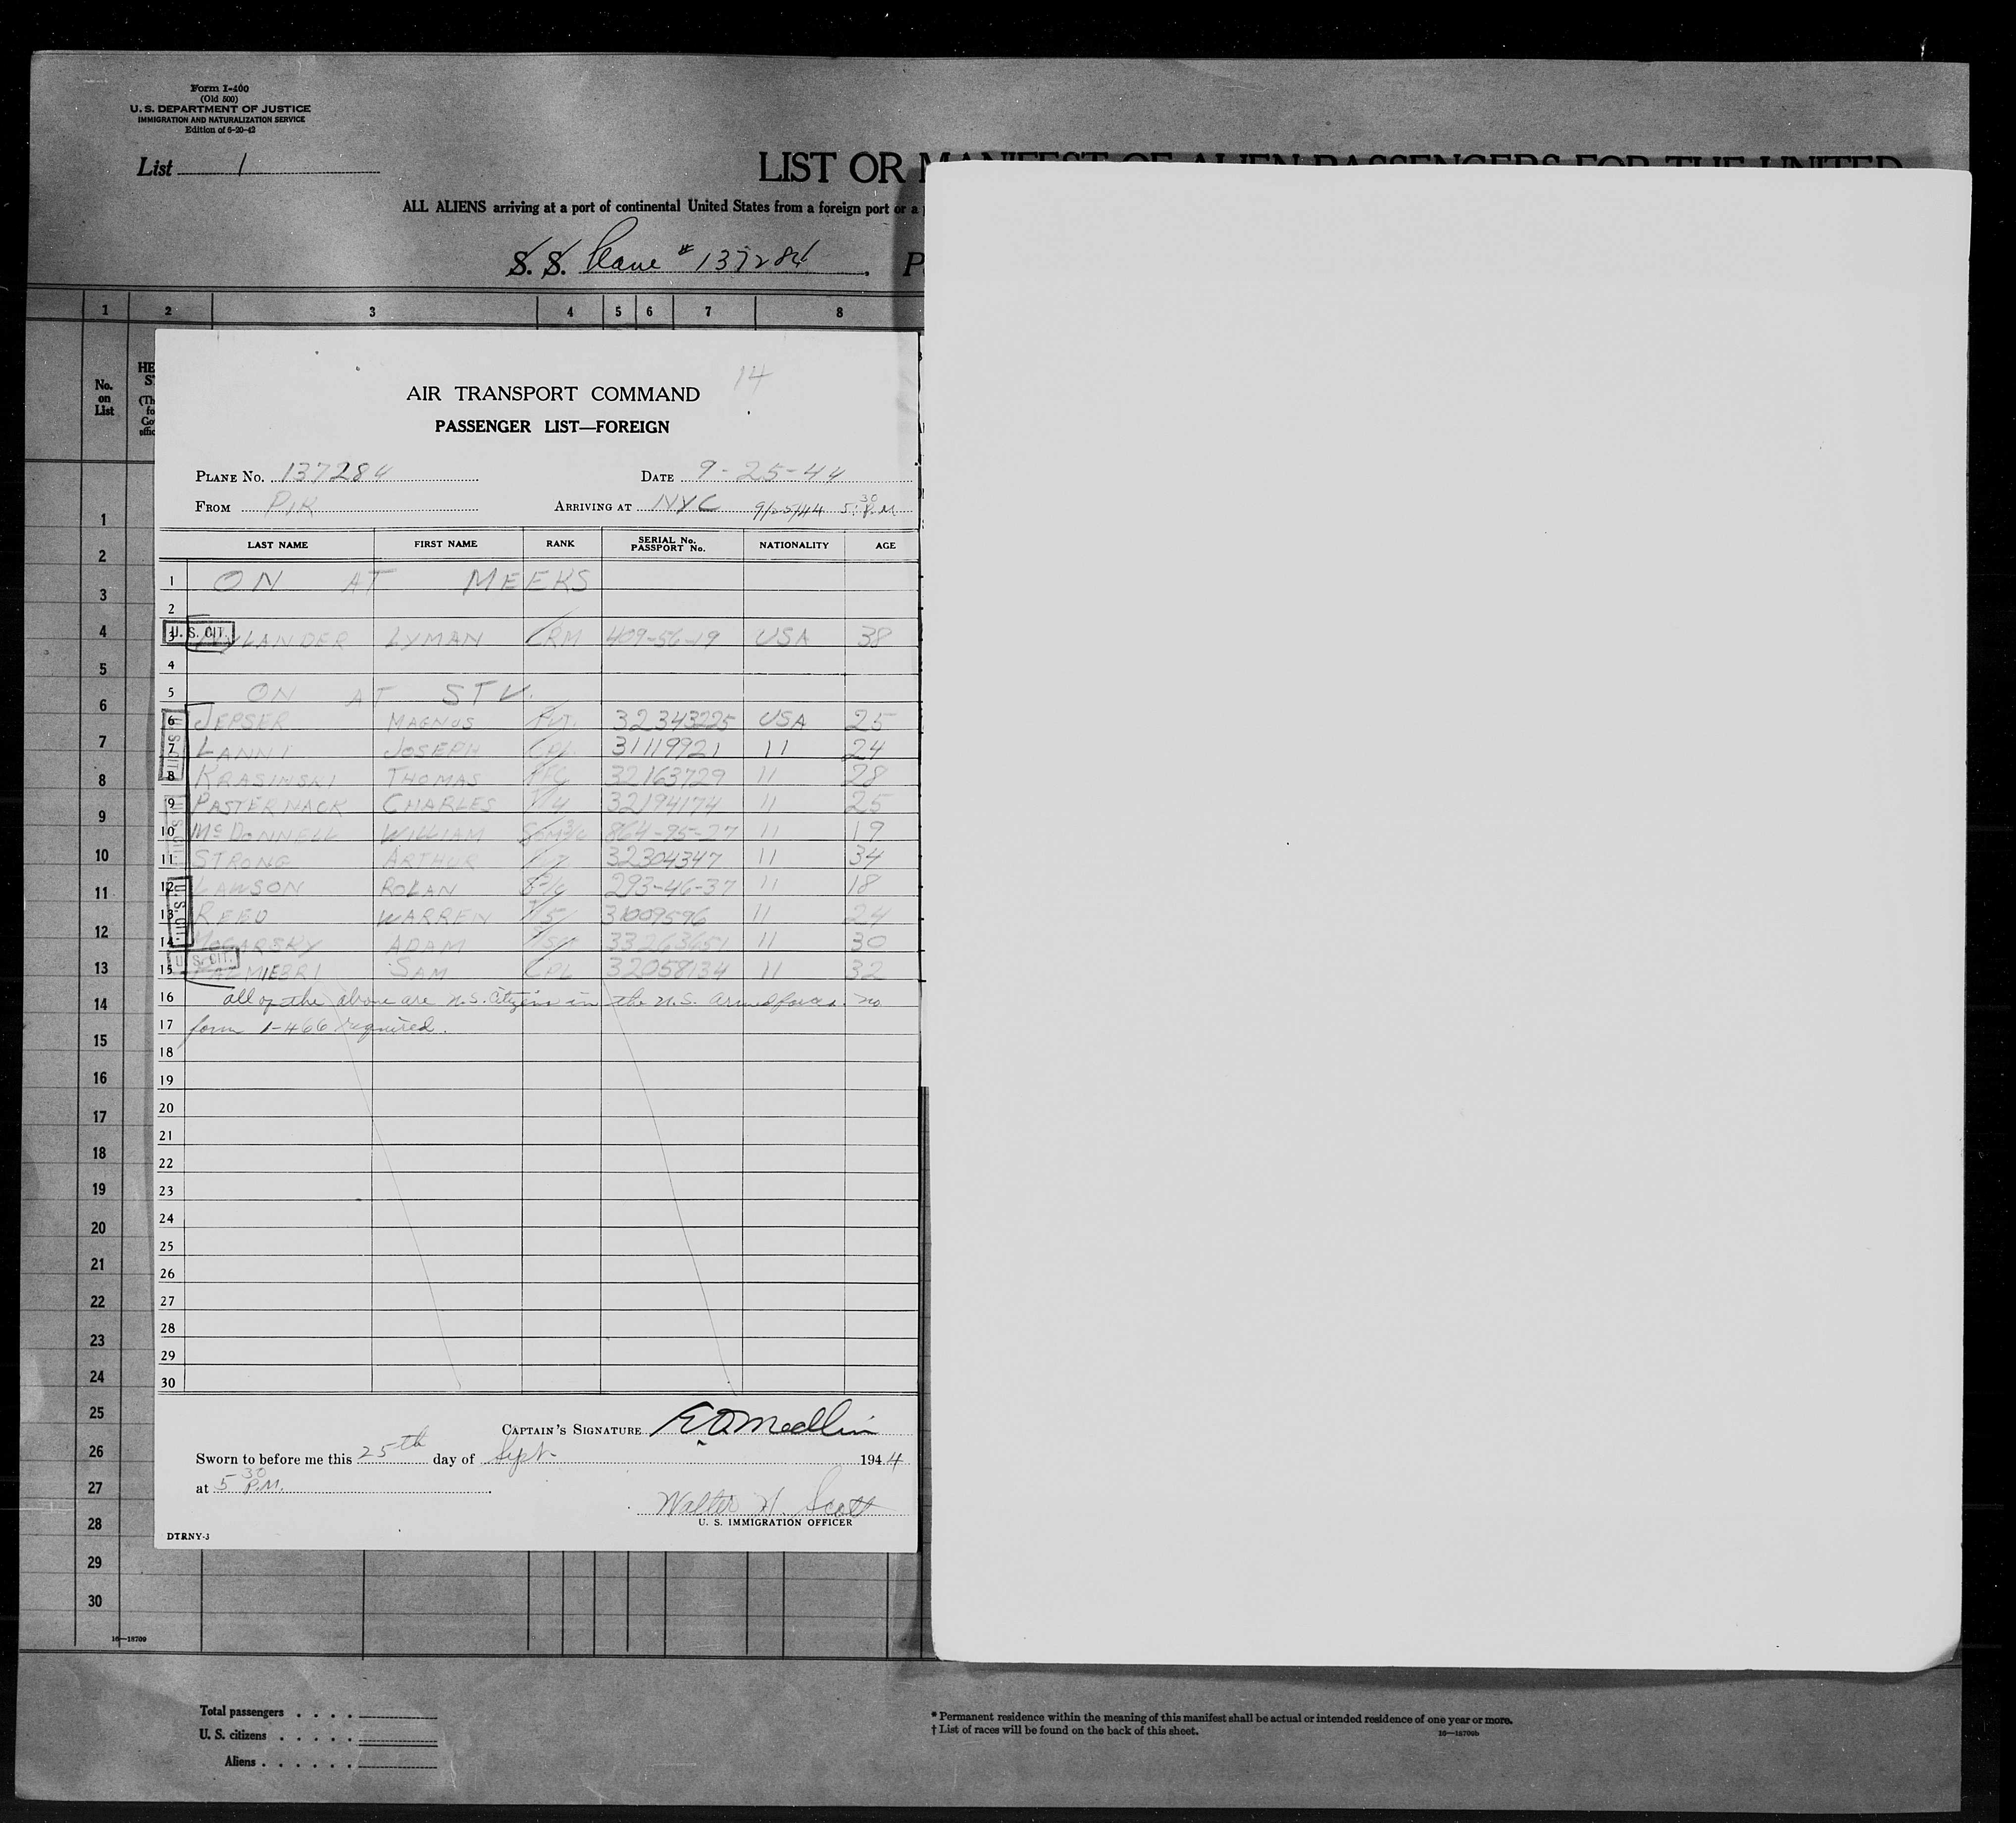 Form I-400
(Old 500)
U. S. DEPARTMENT OF JUSTICE
IMMIGRATION AND NATURALIZATION SERVICE
Edition of 6-20-42
List 1
LIST OR MANIFEST OF ALIEN PASSENGERS FOR THE UNITED
ALL ALIENS arriving at a port of continental United States from a foreign port or a
S. S. Plane # 137284
1 2 3 4 5 6 7 8
No. on List
14
AIR TRANSPORT COMMAND
PASSENGER LIST—FOREIGN
PLANE No. 137284 DATE 9-25-44
FROM PIK ARRIVING AT NYC 9/25/44 5:30 P.M
LAST NAME FIRST NAME RANK SERIAL No. PASSPORT No. NATIONALITY AGE
1 ON AT MEEKS
2
3 U. S. CIT. LYMAN CRM 409-56-19 USA 38
4
5 ON AT STV.
6 JEPSER MAGNUS Pvt. 32343225 USA 25
7 LANNI JOSEPH CPL 31119921 11 24
8 KRASINSKI THOMAS PFC 32163729 11 28
9 PASTERNACK CHARLES T/4 32194174 11 25
10 McDONNELL WILLIAM 864-95-27 11 19
11 STRONG ARTHUR 32304347 11 34
12 LAWSON ROLAN 293-46-37 11 18
13 REED WARREN T/5 31009596 11 24
14 ADAM 33263651 11 30
15 PALMIERI SAM CPL 32058134 11 32
U. S. CIT.
U. S. CIT.
U. S. CIT.
U. S. CIT.
16 all of the above are U.S. Citizens in the U.S. armed forces. no
17 form I-466 required.
18
19
20
21
22
23
24
25
26
27
28
29
30
CAPTAIN'S SIGNATURE E O Medlin
Sworn to before me this 25th day of Sept. 1944
at 5 30 P.M.
Walter H. Scott
U. S. IMMIGRATION OFFICER
DTRNY-3
1
2
3
4
5
6
7
8
9
10
11
12
13
14
15
16
17
18
19
20
21
22
23
24
25
26
27
28
29
30
16—18709
Total passengers . . . .
U. S. citizens . . . . .
Aliens . . . . . .
* Permanent residence within the meaning of this manifest shall be actual or intended residence of one year or more.
† List of races will be found on the back of this sheet.
16—18709b